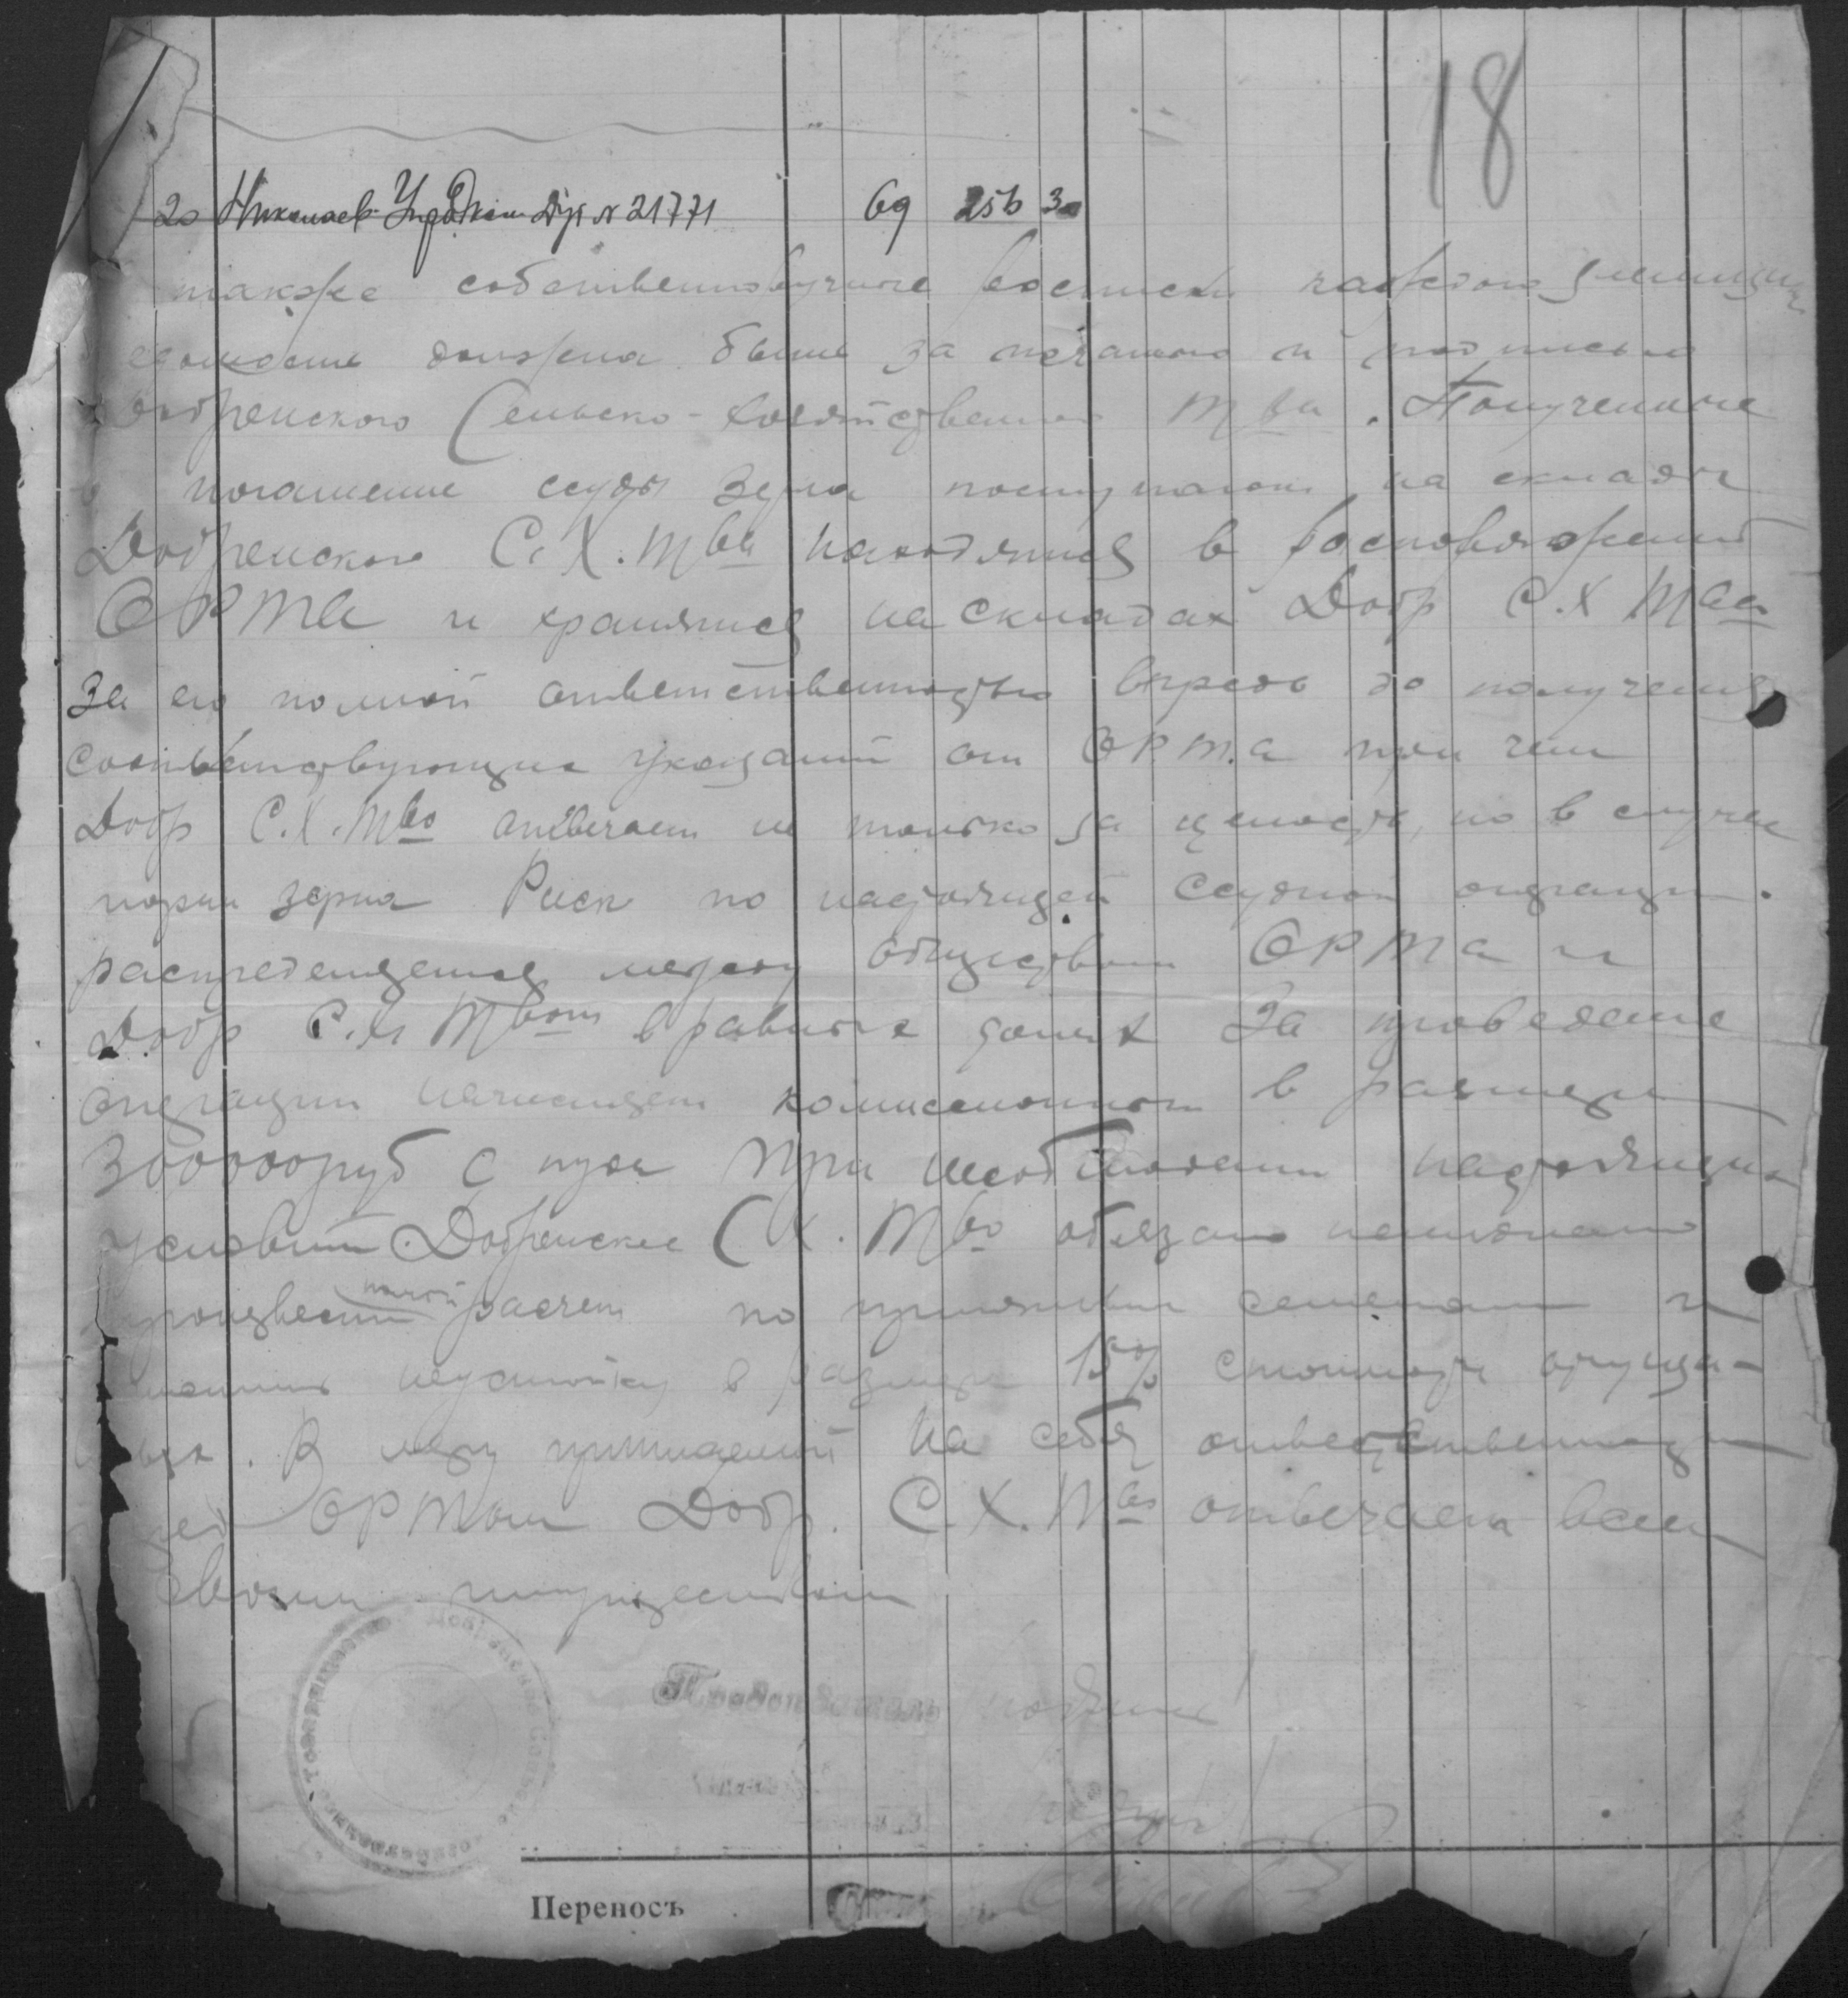 18
20 Николаев. Дуб № 21771 69 256 30
также собственноручные росписи каждого заемщика
должна быть за печатью и подписью
Добренского Сельско-хозяйственного Т-ва. Полученные
в погашение ссуды зерна поступают на склады
Добренского С. Х. Т-ва находятся в распоряжении
ОРТа и хранятся на складах Добр С.Х Т-ва
за его полной ответственностью впредь до получения
соответствующих указаний от ОРТ.а при чем
Добр С.Х.Т-во отвечает не только за ценность, но в случае
порчи зерна Риск по настоящей ссудной операции.
распределяется между обществом ОРТа и
Добр С.Х Т-вом в равных долях За проведение
операции начисляет комиссионных в размере
300000 руб с пуда При несоблюдении настоящих
условий Добренское С Х. Т-во обязано немедленно
произвести полный расчет по принятым семенам и
неустойку в размере 15% стоимости
. В меру принимаемой на себя ответственности
ОРТом Добр. С.Х.Т-во отвечает всем
своим имуществом
Председатель
Переносъ